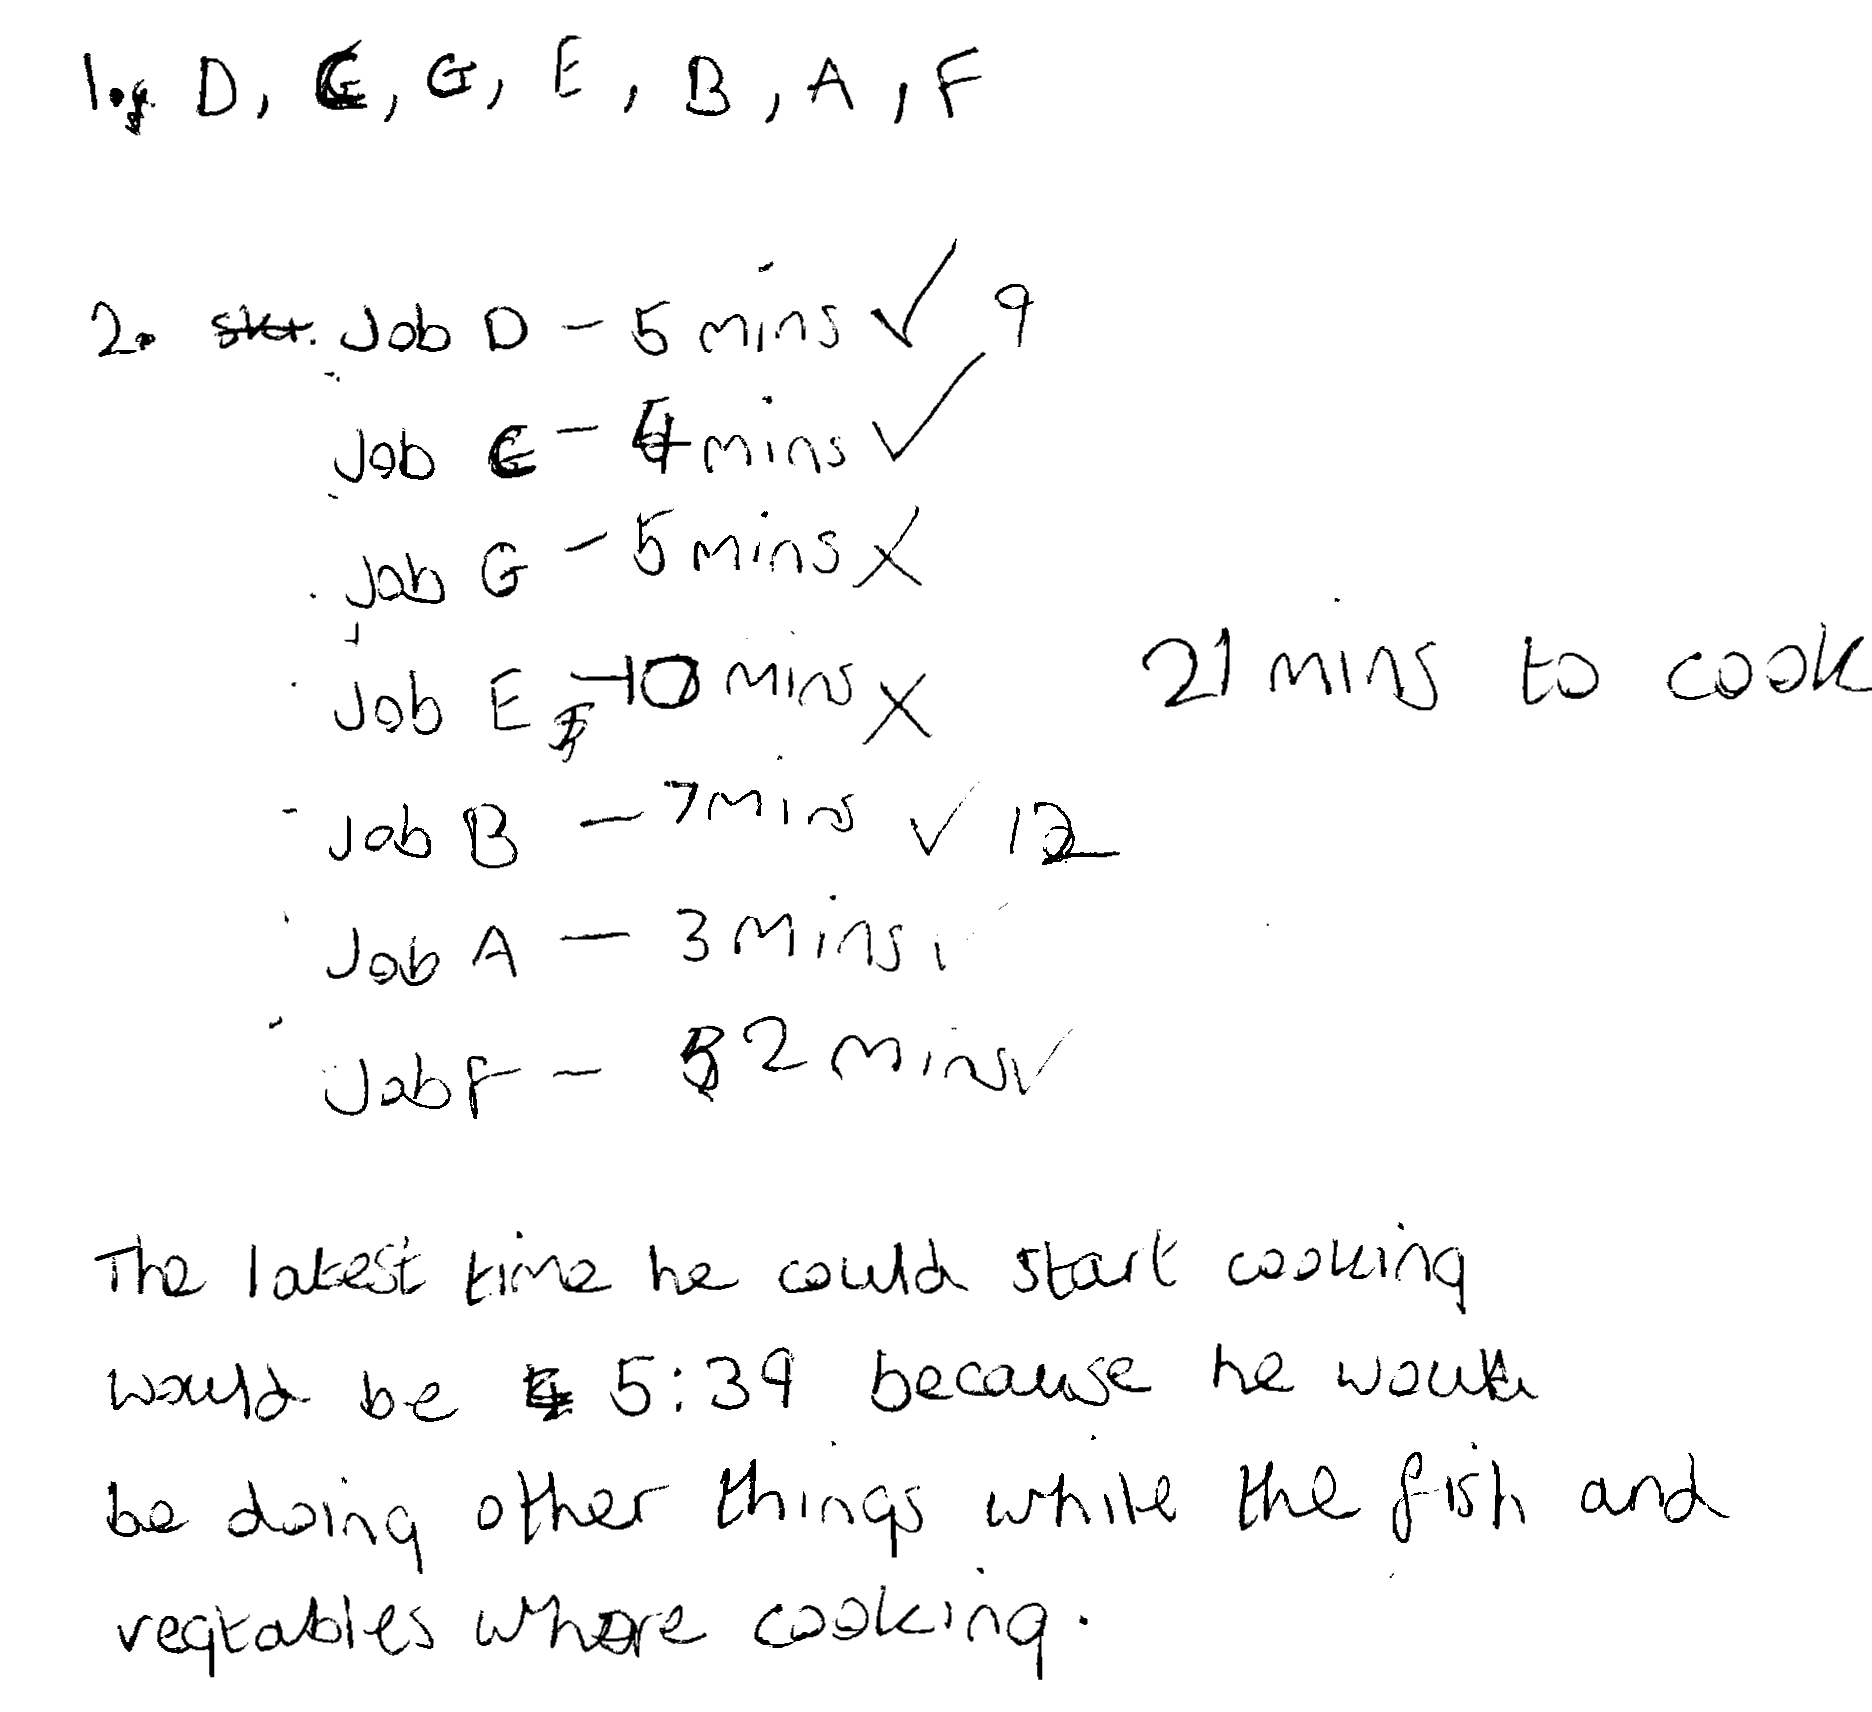 1. D, C, G, E, B, A, F
2. Job D - 5 mins ✓ 9
Job C - 4 mins ✓
Job G - 5 mins X
Job E - 10 mins X
21 mins to cook
Job B - 7 mins ✓ 12
Job A - 3 mins
Job F - 2 mins ✓
The latest time he could start cooking
would be 5:39 because he would
be doing other things while the fish and
vegtables where cooking.